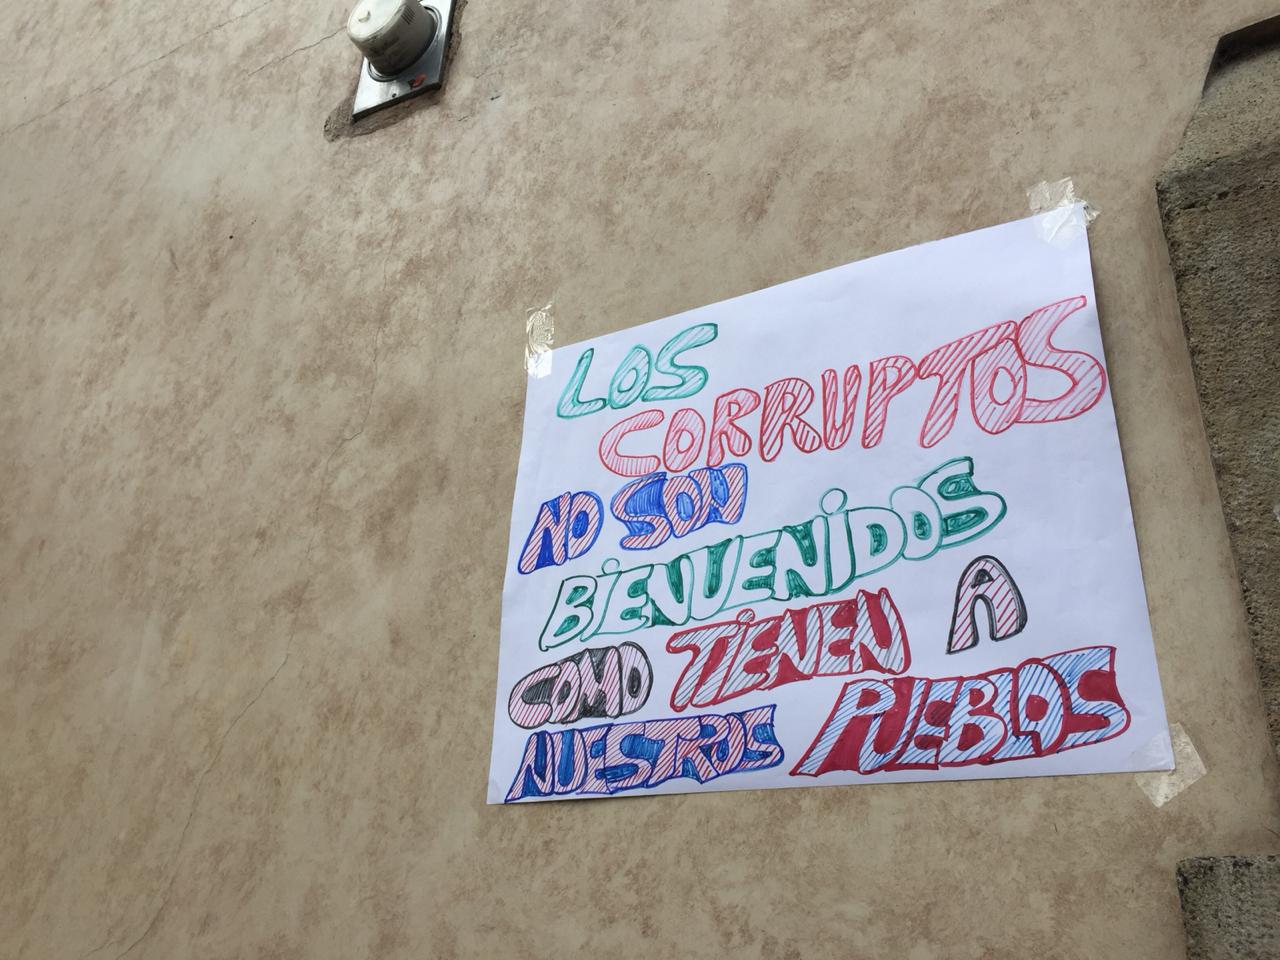 LOS
CORRUPTOS
NO SON
BIENVENIDOS
COMO TIENEN A
NUESTROS PUEBLOS